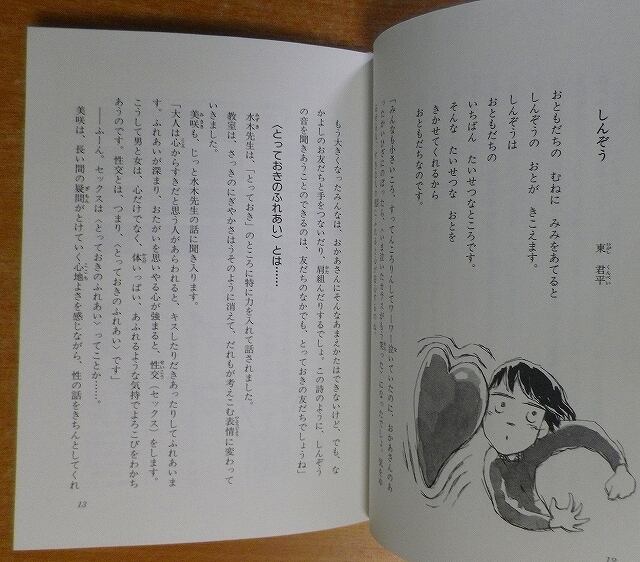 しんぞう
東 君平
おともだちの むねに みみをあてると
しんぞうの おとが きこえます。
しんぞうは
おともだちの
いちばん たいせつなところです。
そんな たいせつな おとを
きかせてくれるから
おともだちなのです。
「みんなも小さいころ、すってんころりんしてワーワー泣いていたのに、おかあさんのあ
もう大きくなったみんなは、おかあさんにそんなあまえかたはできないけど、でも、な
かよしのお友だちと手をつないだり、肩組んだりするでしょ。この詩のように、しんぞう
の音を聞きあうことのできるのは、友だちのなかでも、とっておきの友だちでしょうね」
〈とっておきのふれあい〉とは……
水木先生は、「とっておき」のところに特に力を入れて話されました。
教室は、さっきのにぎやかさはうそのように消えて、だれもが考えこむ表情に変わって
いきました。
美咲も、じっと水木先生の話に聞き入ります。
「大人は心からすきだと思う人があらわれると、キスしたりだきあったりしてふれあいま
す。ふれあいが深まり、おたがいを思いやる心が強まると、性交(セックス)をします。
こうして男と女は、心だけでなく、体いっぱい、あふれるような気持でよろこびをわかち
あうのです。性交とは、つまり、〈とっておきのふれあい〉です」
――ふーん。セックスは〈とっておきのふれあい〉ってことか……。
美咲は、長い間の疑問がとけていく心地よさを感じながら、性の話をきちんとしてくれ
13